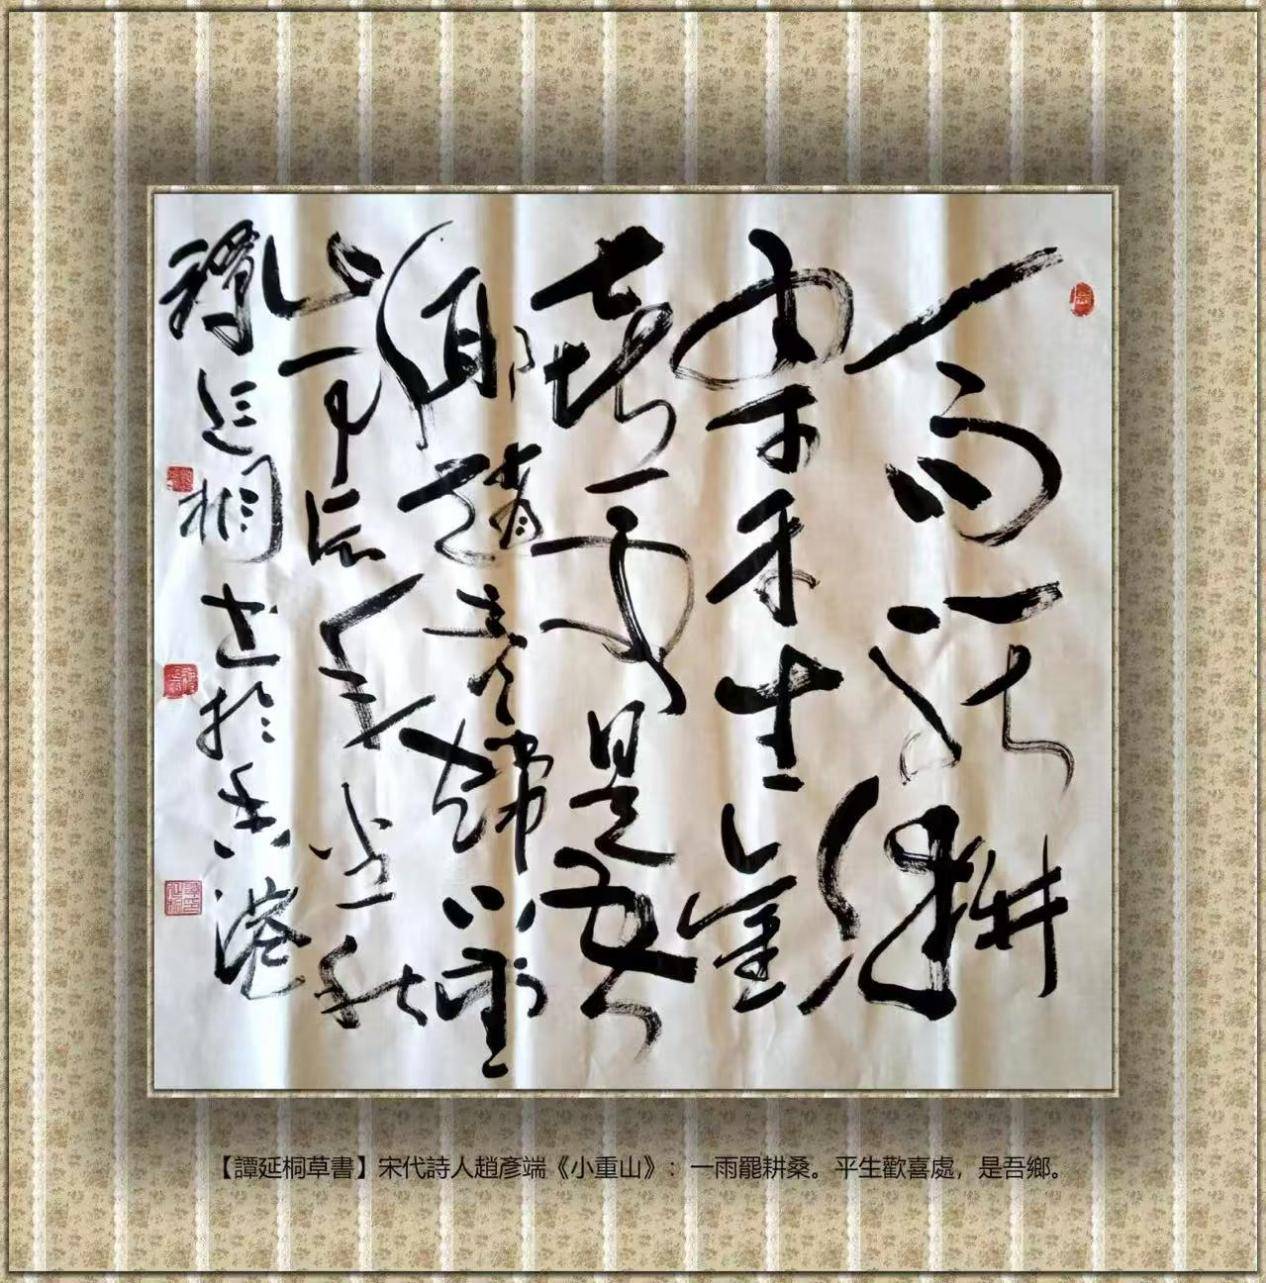 一雨罷耕
桑平生歡
喜處是吾
鄉趙彥端小重
山甲辰年孟秋
譚延桐書於香港
【譚延桐草書】宋代詩人趙彥端《小重山》：一雨罷耕桑。平生歡喜處，是吾鄉。